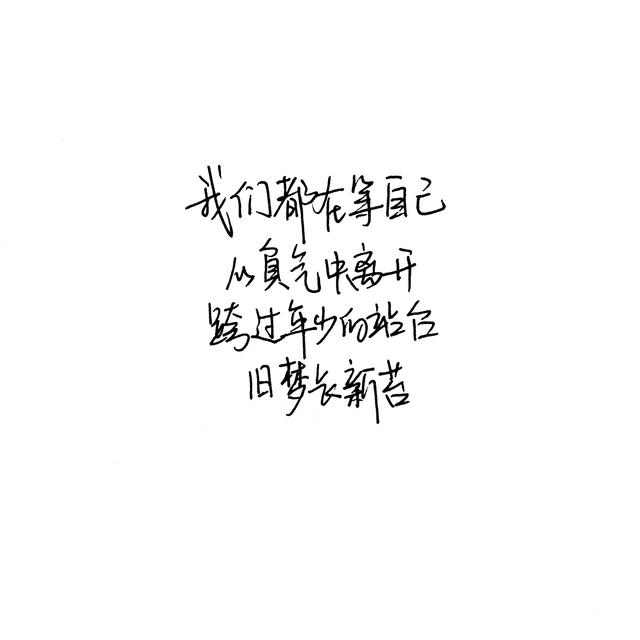 我们都在等自己
从负气中离开
跨过年少的站台
旧梦长新苔